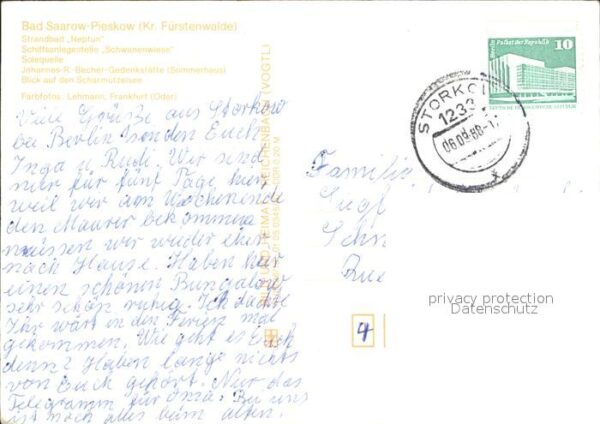 Bad Saarow-Pieskow (Kr. Fürstenwalde)
Strandbad „Neptun"
Schiffsanlegestelle „Schwanenwiese"
Solequelle
Johannes-R.-Becher-Gedenkstätte (Sommerhaus)
Blick auf den Scharmützelsee
Farbfotos: Lehmann, Frankfurt (Oder)
Viele Grüße aus Storkow
bei Berlin senden Euch
Inga u. Rudi. Wir sind
hier für fünf Tage, hier
weil wir am Wochenende
den Maurer bekommen
müssen wir wieder eher
nach Hause. Haben hier
einen schönen Bungalow
sehr schön ruhig. Ich dachte
Ihr wärt in den Ferien mal
gekommen. Wie geht es Euch
denn? Haben lange nichts
von Euch gehört. Nur das
Telegramm für Oma. Bei uns
ist noch alles beim alten.
UND HEIMA REICHENBACH (VOGTL)
Palast der Republik
10
STORKOW
1233
Famili
4
privacy protection
Datenschutz